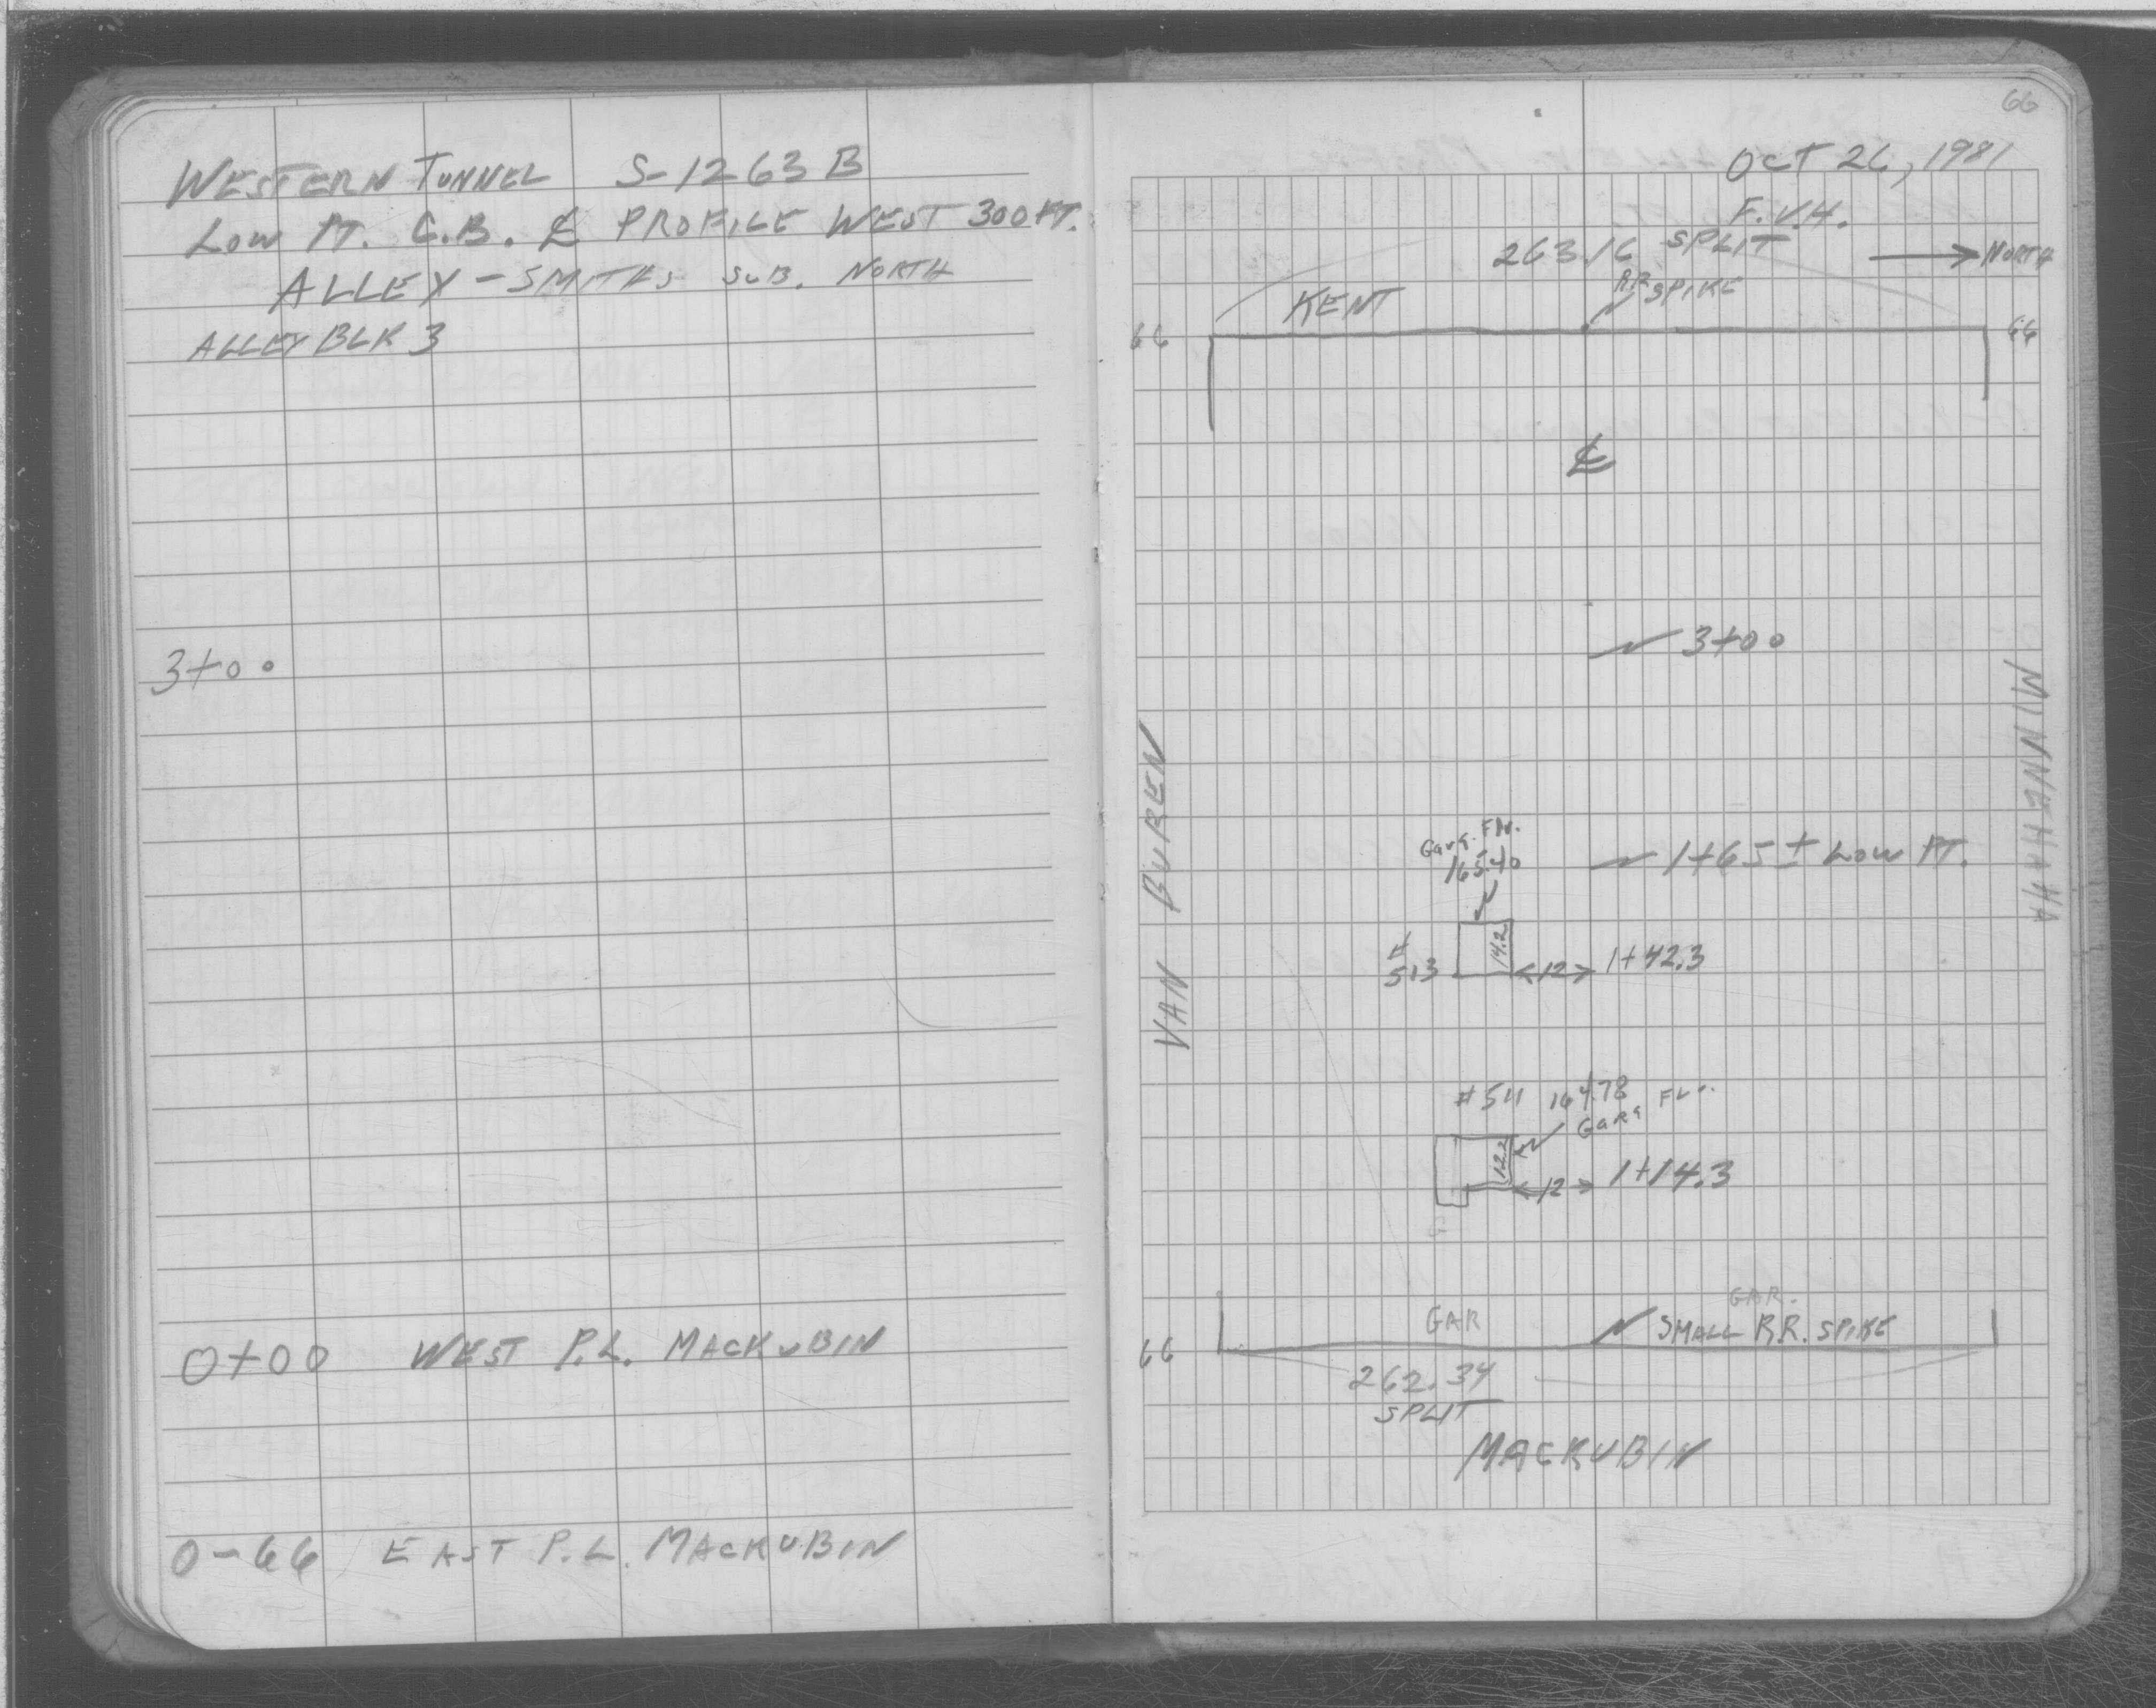 WESTERN TUNNEL S-1263 B
LOW PT. C.B. ℄ PROFILE WEST 300 FT.
ALLEY - SMITHS SUB. NORTH
ALLEY BLK 3
3+00
0+00 WEST P.L. MACKUBIN
0-66 EAST P.L. MACKUBIN
66
OCT 26, 1981
F.V.H.
263.16 SPLIT
NORTH
R.R. SPIKE
KENT
66
66
℄
3+00
MINNEHAHA
VAN BUREN
Garg. Flr.
165.40
1+65± LOW PT.
14.2
#
513
12
1+42.3
#511 164.78
GARG FLr.
12.2
12
1+14.3
GAR
GAR.
SMALL R.R. SPIKE
66
262.34
SPLIT
MACKUBIN